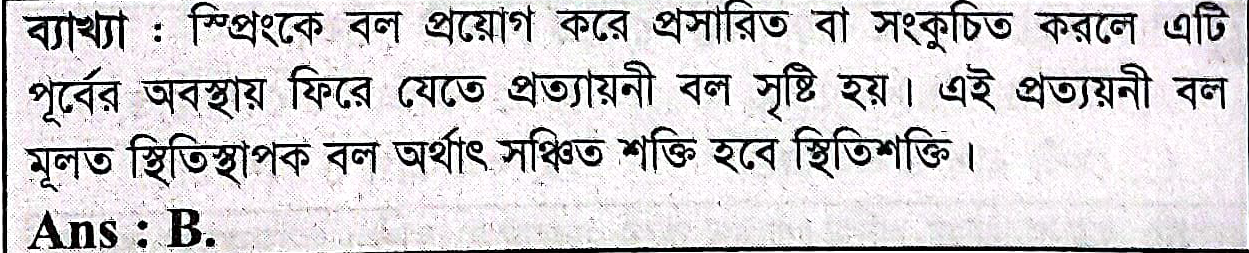 ব্যাখ্যা : স্প্রিংকে বল প্রয়োগ করে প্রসারিত বা সংকুচিত করলে এটি
পূর্বের অবস্থায় ফিরে যেতে প্রত্যায়নী বল সৃষ্টি হয়। এই প্রত্যয়নী বল
মূলত স্থিতিস্থাপক বল অর্থাৎ সঞ্চিত শক্তি হবে স্থিতিশক্তি।
Ans : B.